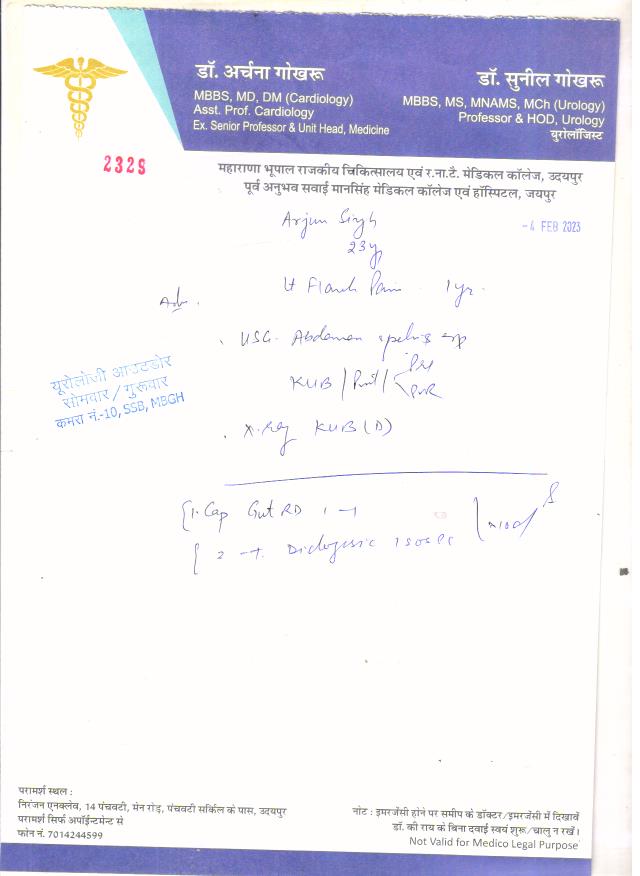 डॉ. अर्चना गोखरू
MBBS, MD, DM (Cardiology)
Asst. Prof. Cardiology
Ex. Senior Professor & Unit Head, Medicine
डॉ. सुनील गोखरू
MBBS, MS, MNAMS, MCh (Urology)
Professor & HOD, Urology
यूरोलॉजिस्ट
2329
महाराणा भूपाल राजकीय चिकित्सालय एवं र.ना.टै. मेडिकल कॉलेज, उदयपुर
पूर्व अनुभव सवाई मानसिंह मेडिकल कॉलेज एवं हॉस्पिटल, जयपुर
-4 FEB 2023
Arjun Singh
23y
Lt Flank Pain 1 yr.
Adv.
USG. Abdomen
KUB / Prost / PVR
X-Ray KUB (D)
यूरोलोजी आउटडोर
सोमवार / गुरूवार
कमरा नं.-10, SSB, MBGH
1. Cap Gut RD 1-1
2 -T.
x10d
परामर्श स्थल :
निरंजन एनक्लेव, 14 पंचवटी, मेन रोड़, पंचवटी सर्किल के पास, उदयपुर
परामर्श सिर्फ अपॉईन्टमेन्ट से
फोन नं. 7014244599
नोट : इमरजेंसी होने पर समीप के डॉक्टर/इमरजेंसी में दिखावें
डॉ. की राय के बिना दवाई स्वयं शुरू/चालु न रखें।
Not Valid for Medico Legal Purpose